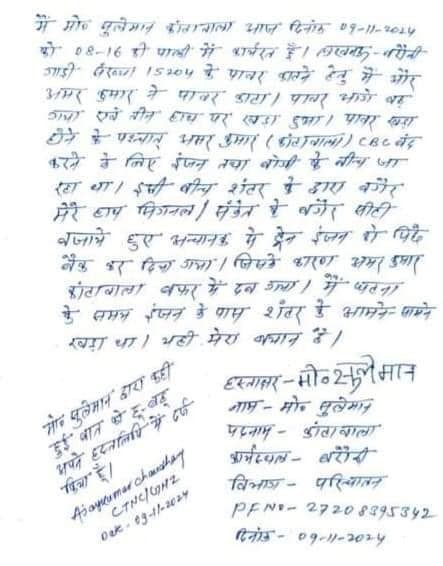 मैं मो० सुलेमान कांटावाला आज दिनांक 09-11-2024
को 08-16 की पाली में कार्यरत हूँ। लखनऊ-बरौनी
गाड़ी संख्या 15204 के पावर काटने हेतु मैं और
अमर कुमार ने पावर काटा। पावर आगे बढ़
गया एवं तीन हाथ पर खड़ा हुआ। पावर खड़ा
होने के पश्चात् अमर कुमार (कांटावाला) CBC बंद
करने के लिए इंजन तथा बोगी के बीच जा
रहा था। इसी बीच शंटर के द्वारा बगैर
मेरे हाथ सिगनल/संकेत के बगैर सीटी
बजाते हुए अचानक से ट्रेन इंजन को पिछे
बैक कर दिया गया। जिसके कारण अमर कुमार
कांटावाला बफर में दब गया। मैं घटना
के समय इंजन के पास शंटर के आमने-सामने
खड़ा था। यही मेरा बयान है।
हस्ताक्षर - मो० सुलेमान
नाम - मो० सुलेमान
पदनाम - कांटावाला
कार्यस्थल - बरौनी
विभाग - परिचालन
PF NO - 27208395342
दिनांक - 09-11-2024
मो० सुलेमान द्वारा कही
हुई बात को हू-बहू
अपने हस्तलिपि में दर्ज
किया हूँ।
Ajay Kumar Choudhary
Date - 09-11-2024